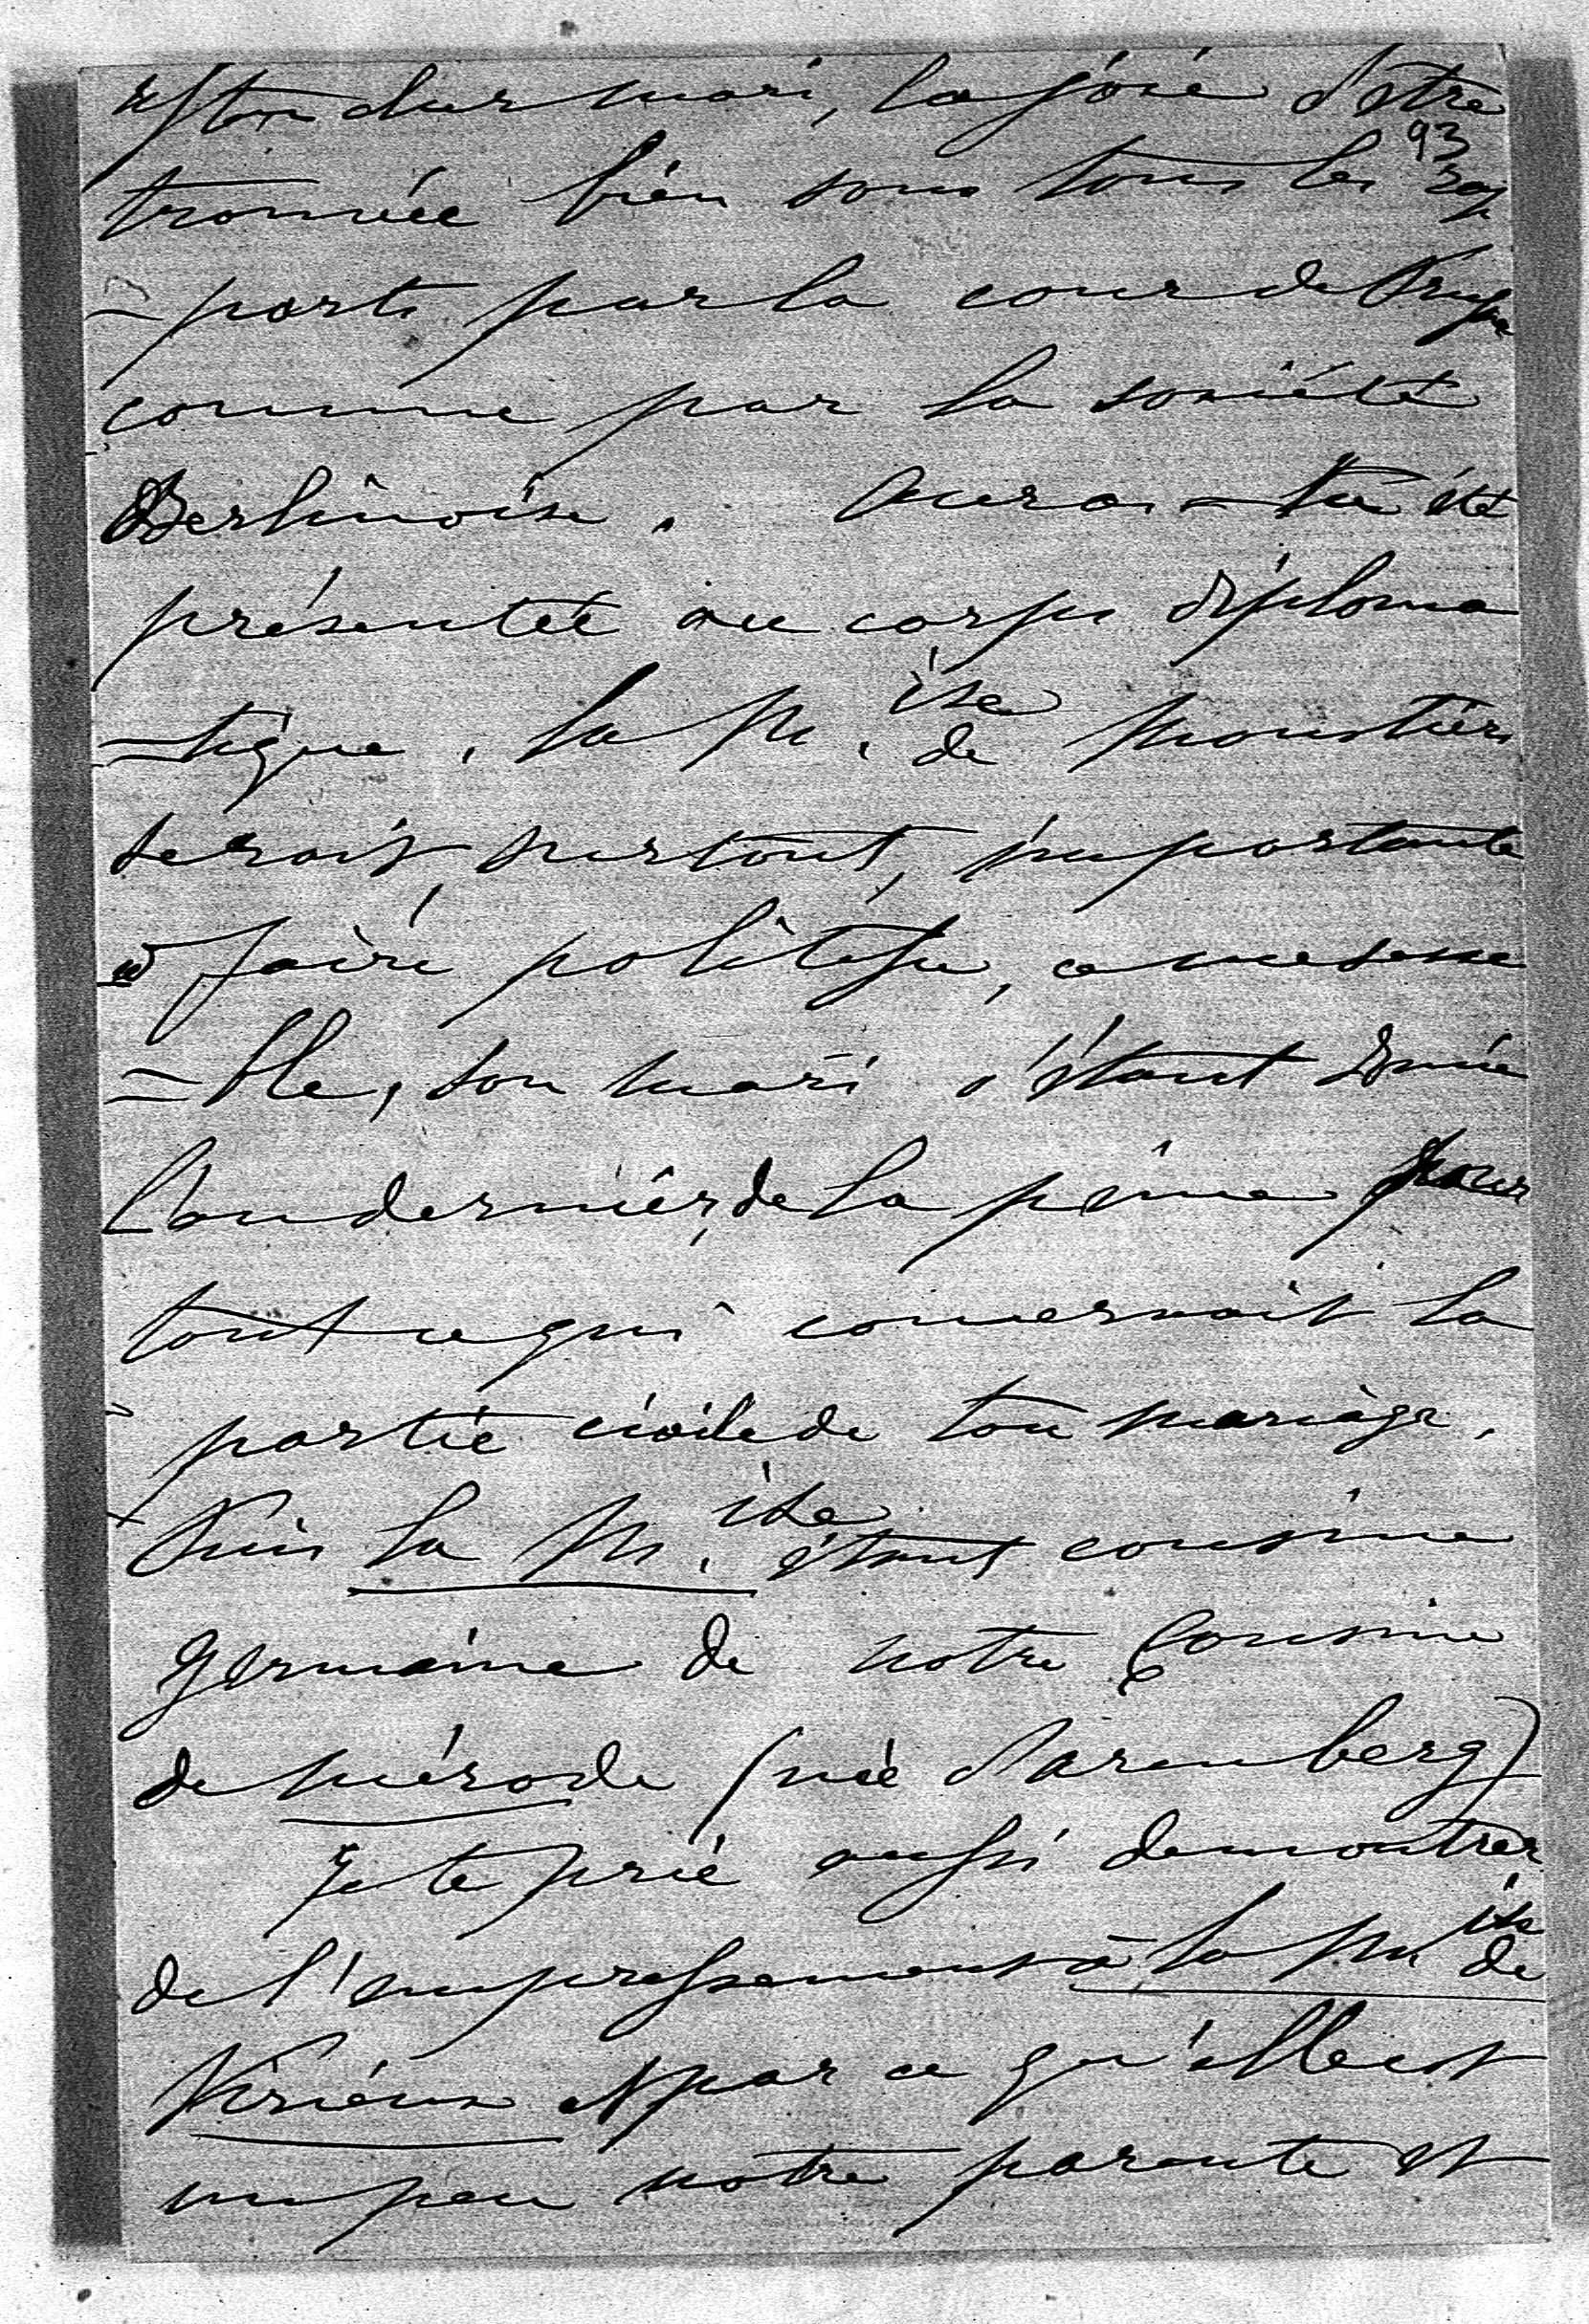 et ton cher mari, la joie d'être
93
trouvée bien sous tous les rap
-ports par la cour de Prusse
comme par la société
Berlinoise. Auras-tu été
présentée au corps diploma
=tique. la M.ise de Moustiers
serait, surtout, importante
à faire politesse, ce me sem
=ble, son mari s'étant donné
l'an dernier, de la peine pour
tout ce qui concernait la
partie civile de ton mariage.
Puis la M.ise étant cousine
germaine de notre Cousine
de Mérode (née d'Arenberg)
Je te prie aussi de montrer
de l'empressement à la Mise de
Virieux et par ce qu'elle est
un peu notre parente et